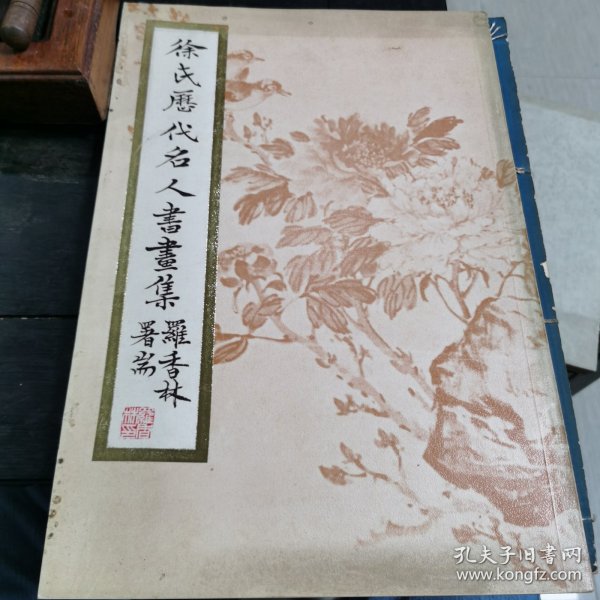 徐氏歷代名人書畫集
羅香林
署耑
孔夫子旧书网
www.kongfz.com